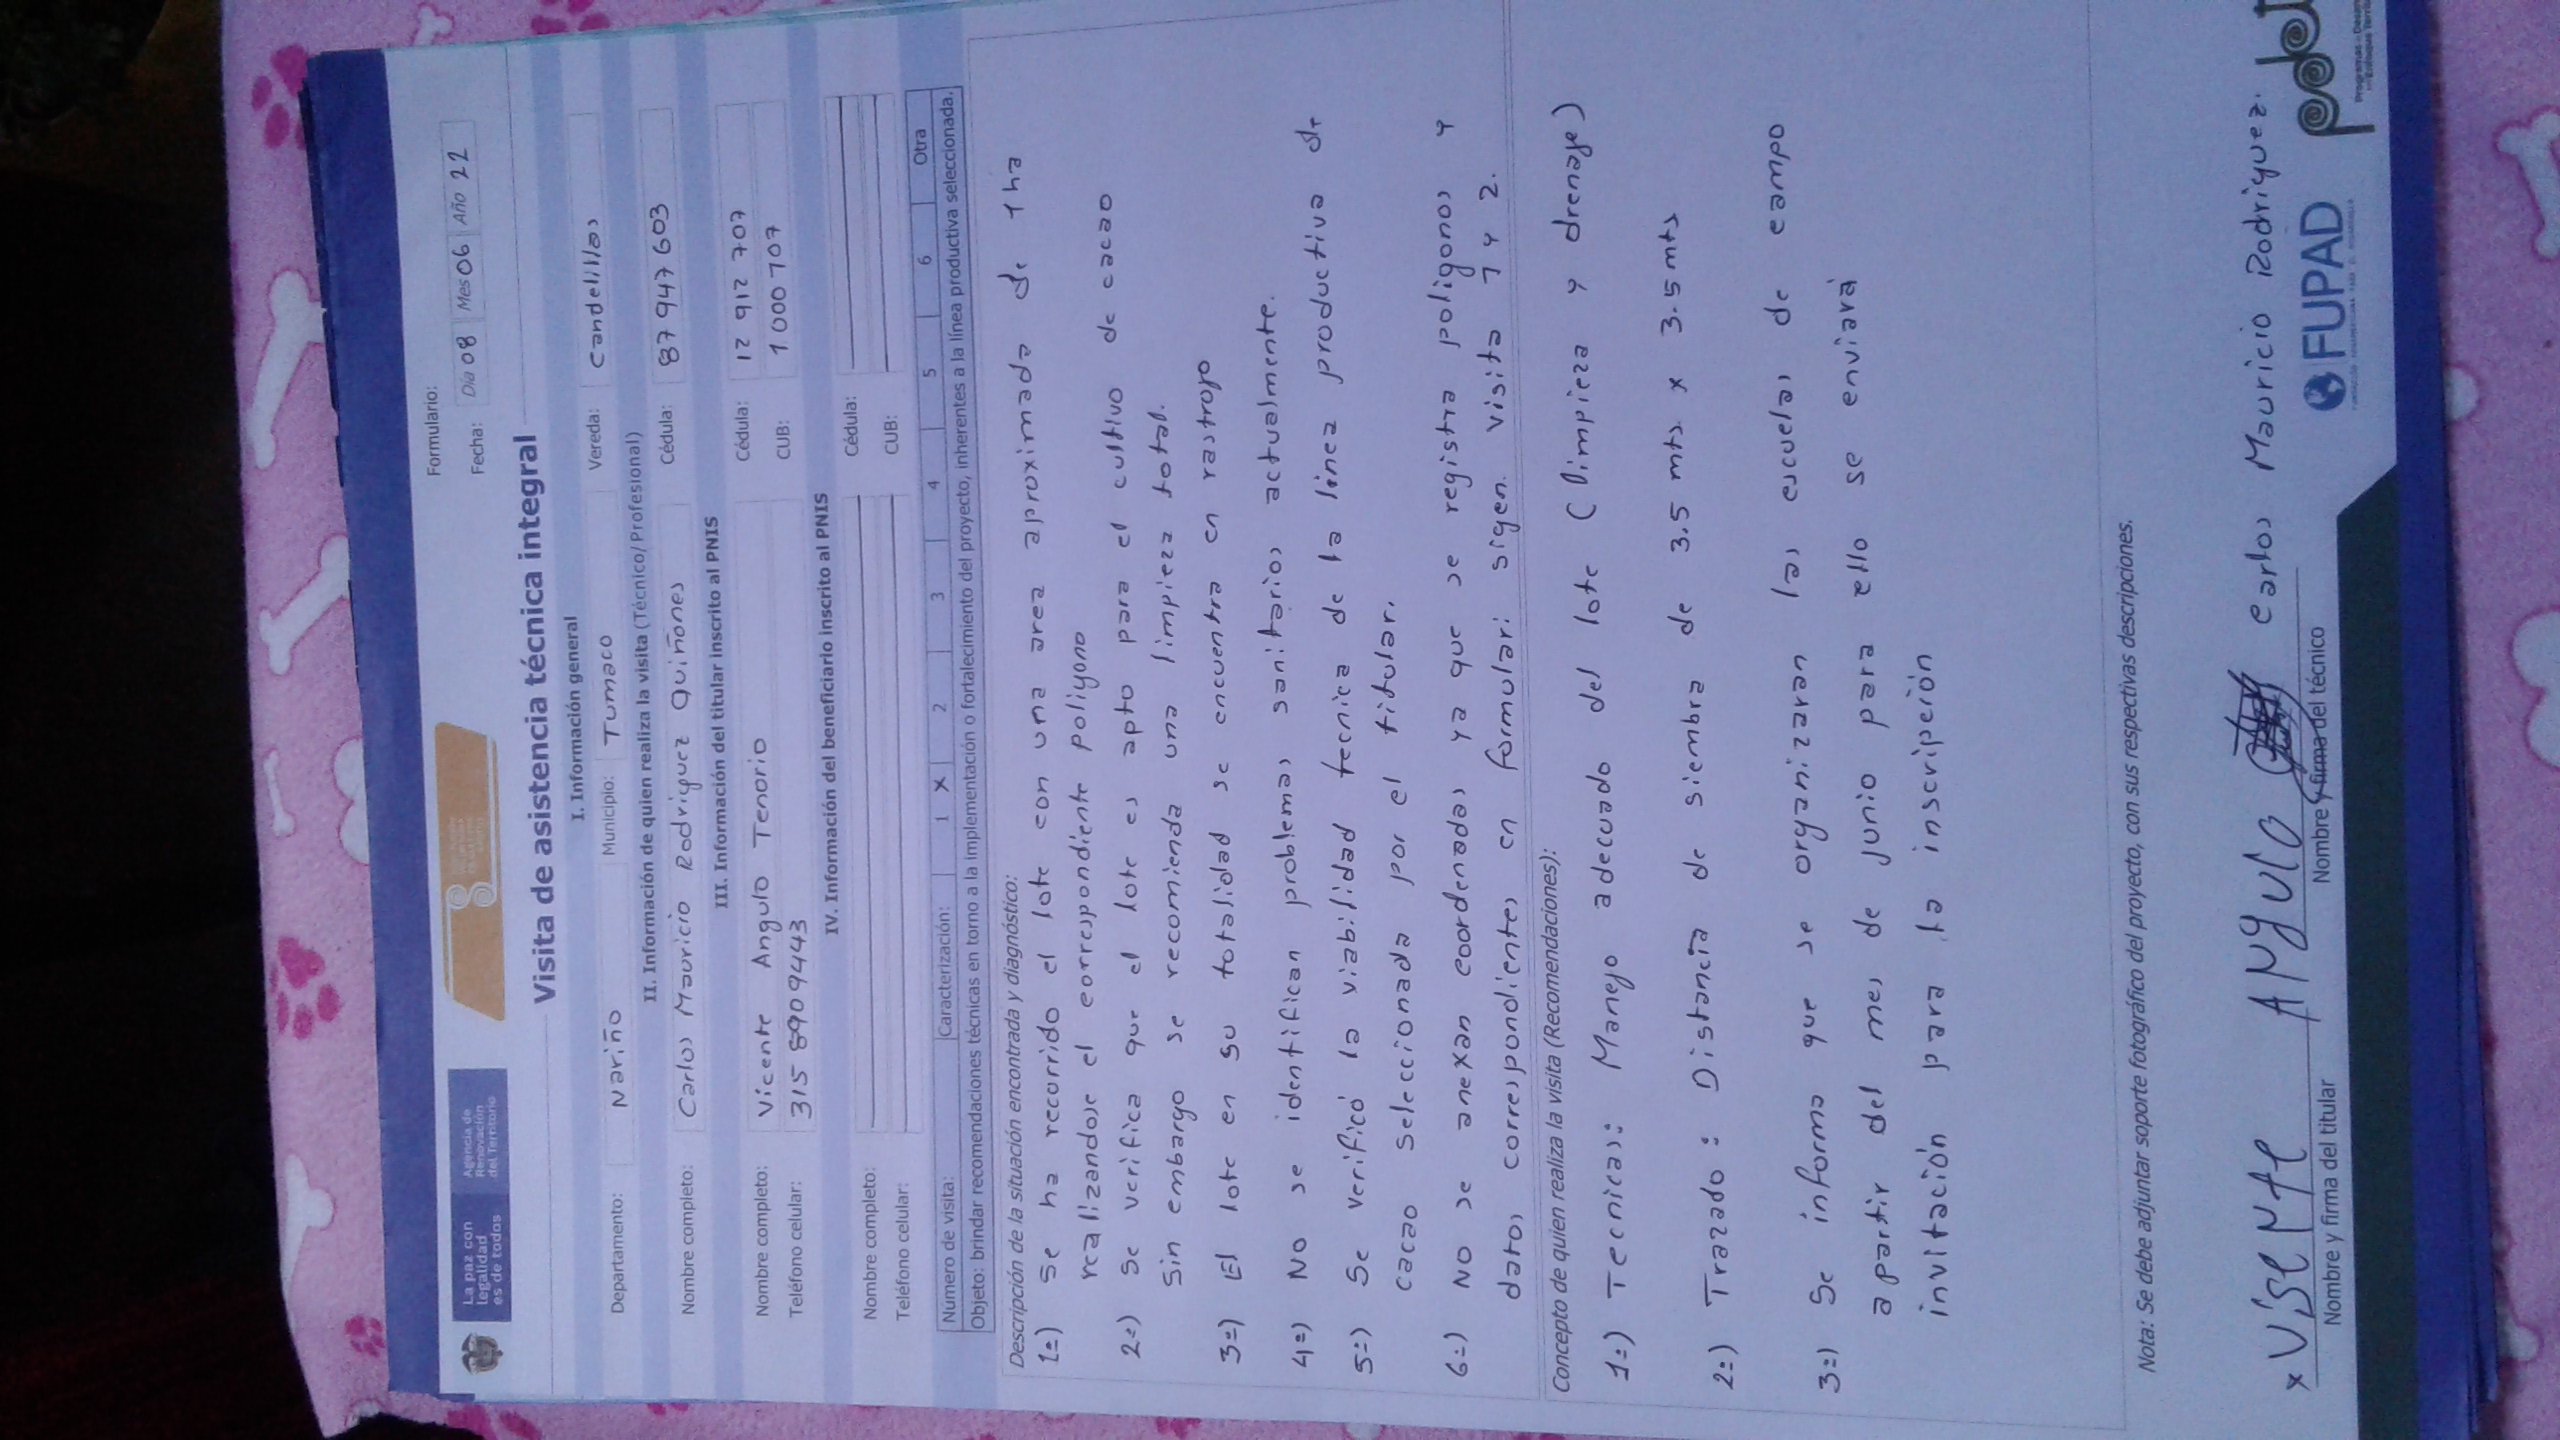 La paz con
legalidad
es de todos
Agencia de
Renovación
del Territorio
Formulario:
Fecha: Día 08 Mes 06 Año 22
Visita de asistencia técnica integral
I. Información general
Departamento: Nariño Municipio: Tumaco Vereda: candelillas
II. Información de quien realiza la visita (Técnico/Profesional)
Nombre completo: Carlos Mauricio Rodriguez Quiñones Cédula: 87 947 603
III. Información del titular inscrito al PNIS
Nombre completo: Vicente Angulo Tenorio Cédula: 12 912 707
Teléfono celular: 315 8909443 CUB: 1 000 707
IV. Información del beneficiario inscrito al PNIS
Nombre completo: Cédula:
Teléfono celular: CUB:
Número de visita: Caracterización: 1 X 2 3 4 5 6 Otra
Objeto: brindar recomendaciones técnicas en torno a la implementación o fortalecimiento del proyecto, inherentes a la línea productiva seleccionada.
Descripción de la situación encontrada y diagnóstico:
1=) Se ha recorrido el lote con una area aproximada de 1 ha
realizandose el correspondiente poligono
2=) Se verifica que el lote es apto para el cultivo de cacao
Sin embargo se recomienda una limpieza total.
3=) El lote en su totalidad se encuentra en rastrojo
4=) No se identifican problemas sanitarios actualmente.
5=) Se verificó la viabilidad tecnica de la linea productiva de
cacao seleccionada por el titular.
6=) No se anexan coordenadas ya que se registra poligonos y
datos correspondientes en formulari sigen. visita 1 y 2.
Concepto de quien realiza la visita (Recomendaciones):
1=) Tecnicas: Manejo adecuado del lote (limpieza y drenaje)
2=) Trazado: Distancia de siembra de 3.5 mts. x 3.5 mts
3=) Se informa que se organizaran las escuelas de campo
a partir del mes de junio para ello se enviará
invitación para la inscripción
Nota: Se debe adjuntar soporte fotográfico del proyecto, con sus respectivas descripciones.
x Visente Angulo Carlos Mauricio Rodriguez.
Nombre y firma del titular Nombre y firma del técnico
FUPAD
pdet